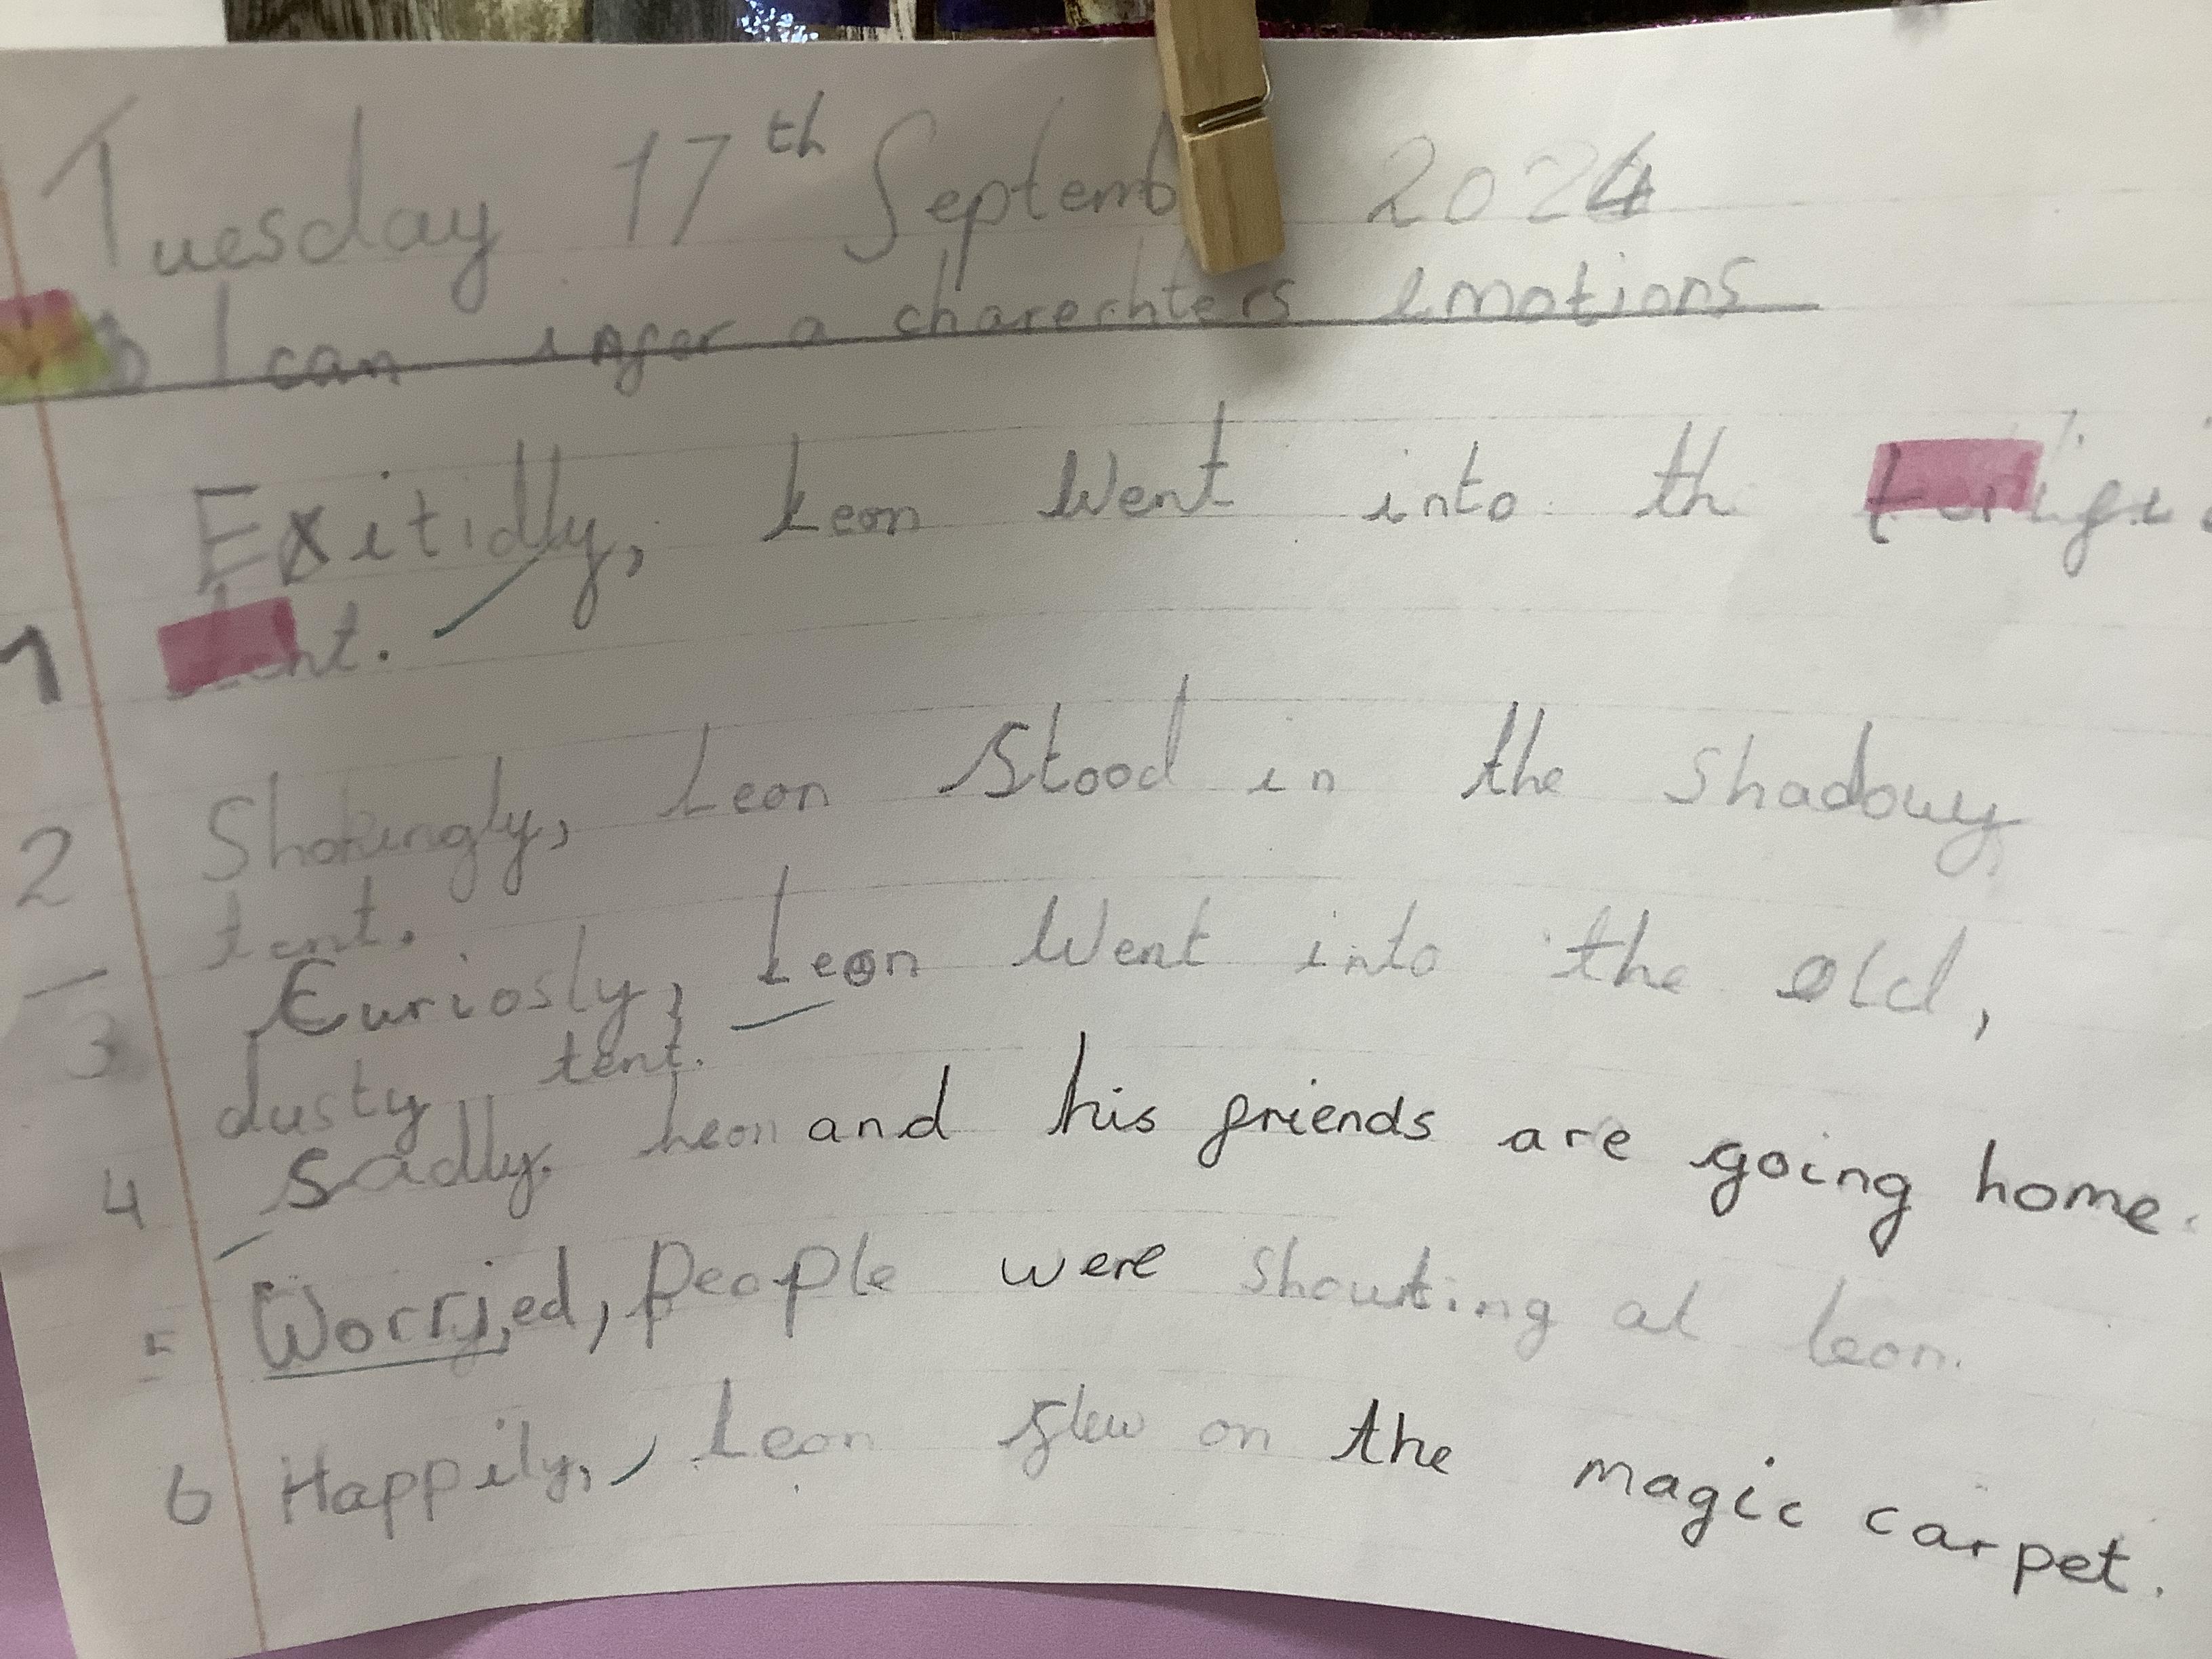 Tuesday 17th Septemb 2024
I can infer a charechters emotions
Exitidly, Leon Went into th
1
2 Shokingly, Leon Stood in the shadowy
tent.
3 Curiosly, Leon Went into the old,
dusty tent.
4 Sadly. Leon and his friends are going home.
5 Worried, People were shouting at leon.
6 Happily, Leon flew on the magic carpet.